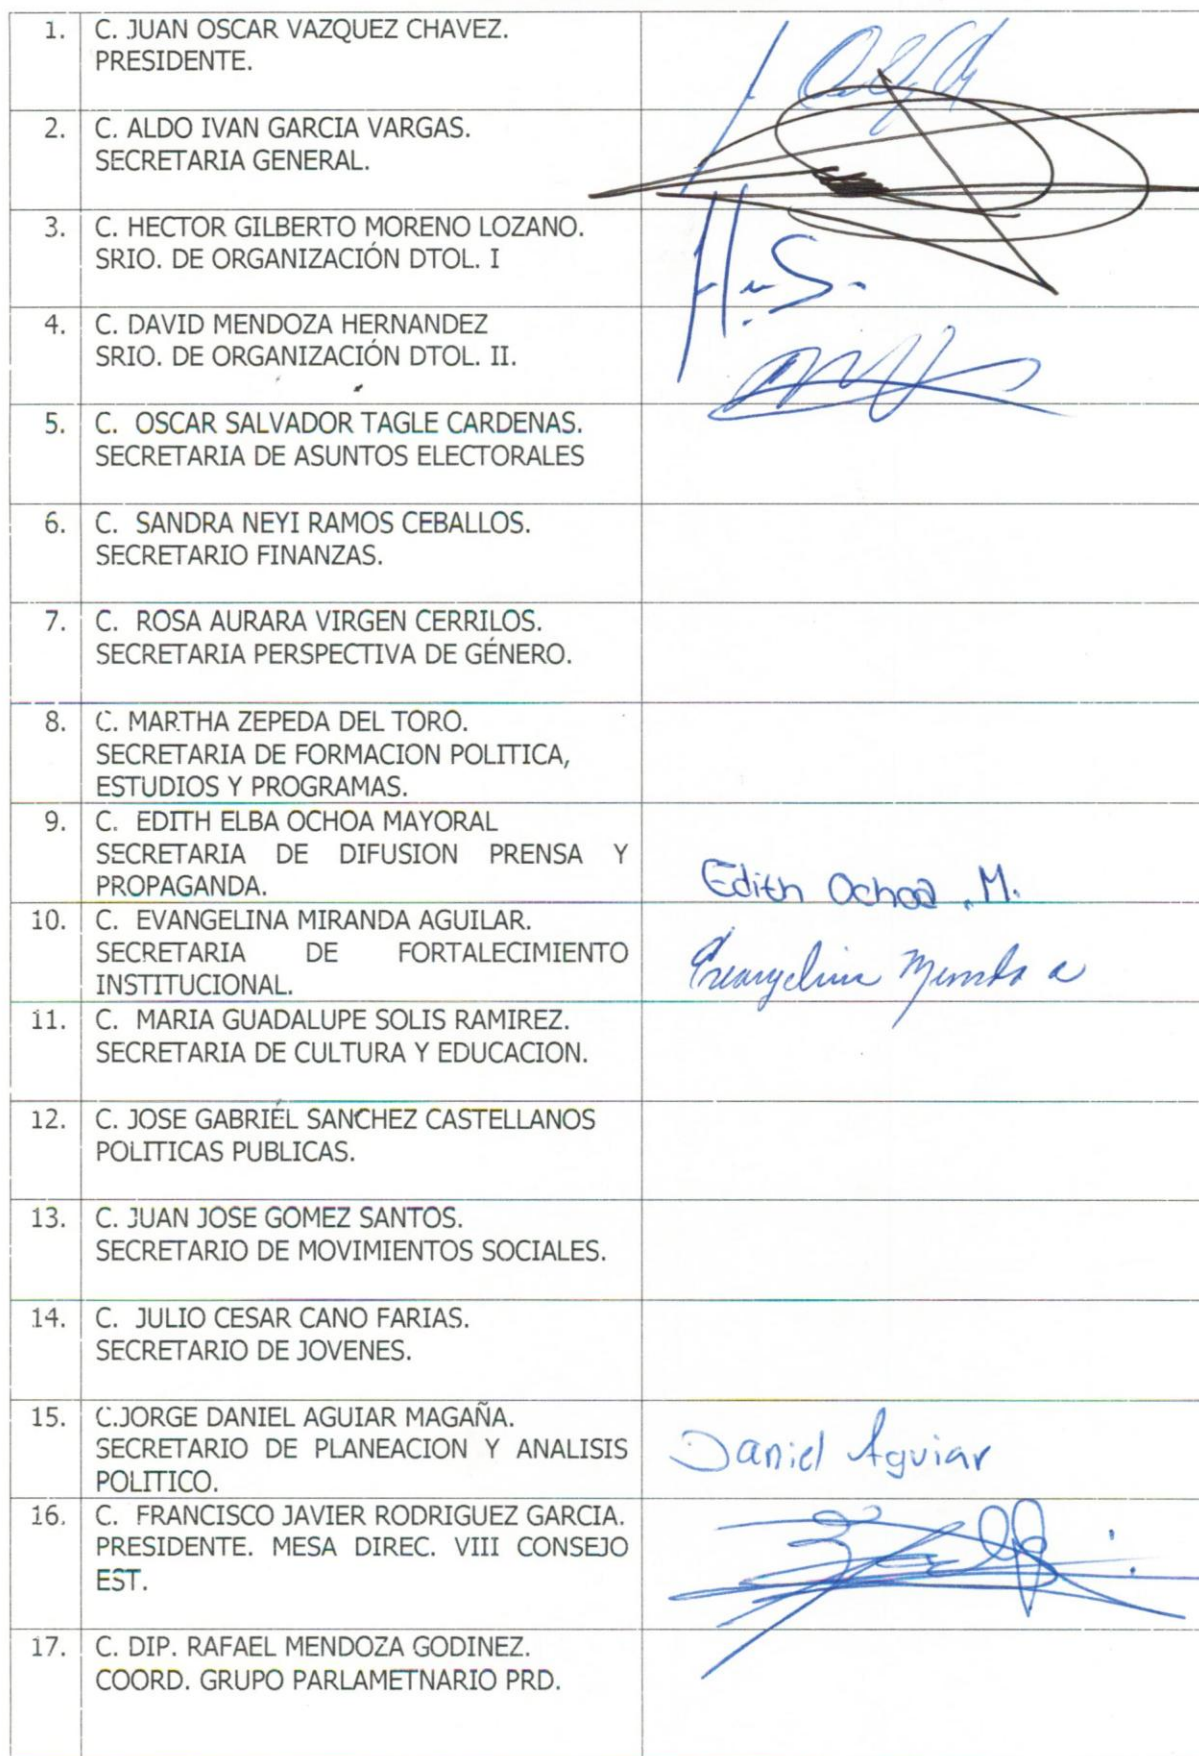 1. C. JUAN OSCAR VAZQUEZ CHAVEZ.
PRESIDENTE.
2. C. ALDO IVAN GARCIA VARGAS.
SECRETARIA GENERAL.
3. C. HECTOR GILBERTO MORENO LOZANO.
SRIO. DE ORGANIZACIÓN DTOL. I
4. C. DAVID MENDOZA HERNANDEZ
SRIO. DE ORGANIZACIÓN DTOL. II.
5. C. OSCAR SALVADOR TAGLE CARDENAS.
SECRETARIA DE ASUNTOS ELECTORALES
6. C. SANDRA NEYI RAMOS CEBALLOS.
SECRETARIO FINANZAS.
7. C. ROSA AURARA VIRGEN CERRILOS.
SECRETARIA PERSPECTIVA DE GÉNERO.
8. C. MARTHA ZEPEDA DEL TORO.
SECRETARIA DE FORMACION POLITICA,
ESTUDIOS Y PROGRAMAS.
9. C. EDITH ELBA OCHOA MAYORAL
SECRETARIA DE DIFUSION PRENSA Y
PROPAGANDA.
Edith Ochoa M.
10. C. EVANGELINA MIRANDA AGUILAR.
SECRETARIA DE FORTALECIMIENTO
INSTITUCIONAL.
11. C. MARIA GUADALUPE SOLIS RAMIREZ.
SECRETARIA DE CULTURA Y EDUCACION.
12. C. JOSE GABRIÉL SANCHEZ CASTELLANOS
POLITICAS PUBLICAS.
13. C. JUAN JOSE GOMEZ SANTOS.
SECRETARIO DE MOVIMIENTOS SOCIALES.
14. C. JULIO CESAR CANO FARIAS.
SECRETARIO DE JOVENES.
15. C.JORGE DANIEL AGUIAR MAGAÑA.
SECRETARIO DE PLANEACION Y ANALISIS
POLITICO.
Daniel Aguiar
16. C. FRANCISCO JAVIER RODRIGUEZ GARCIA.
PRESIDENTE. MESA DIREC. VIII CONSEJO
EST.
17. C. DIP. RAFAEL MENDOZA GODINEZ.
COORD. GRUPO PARLAMETNARIO PRD.